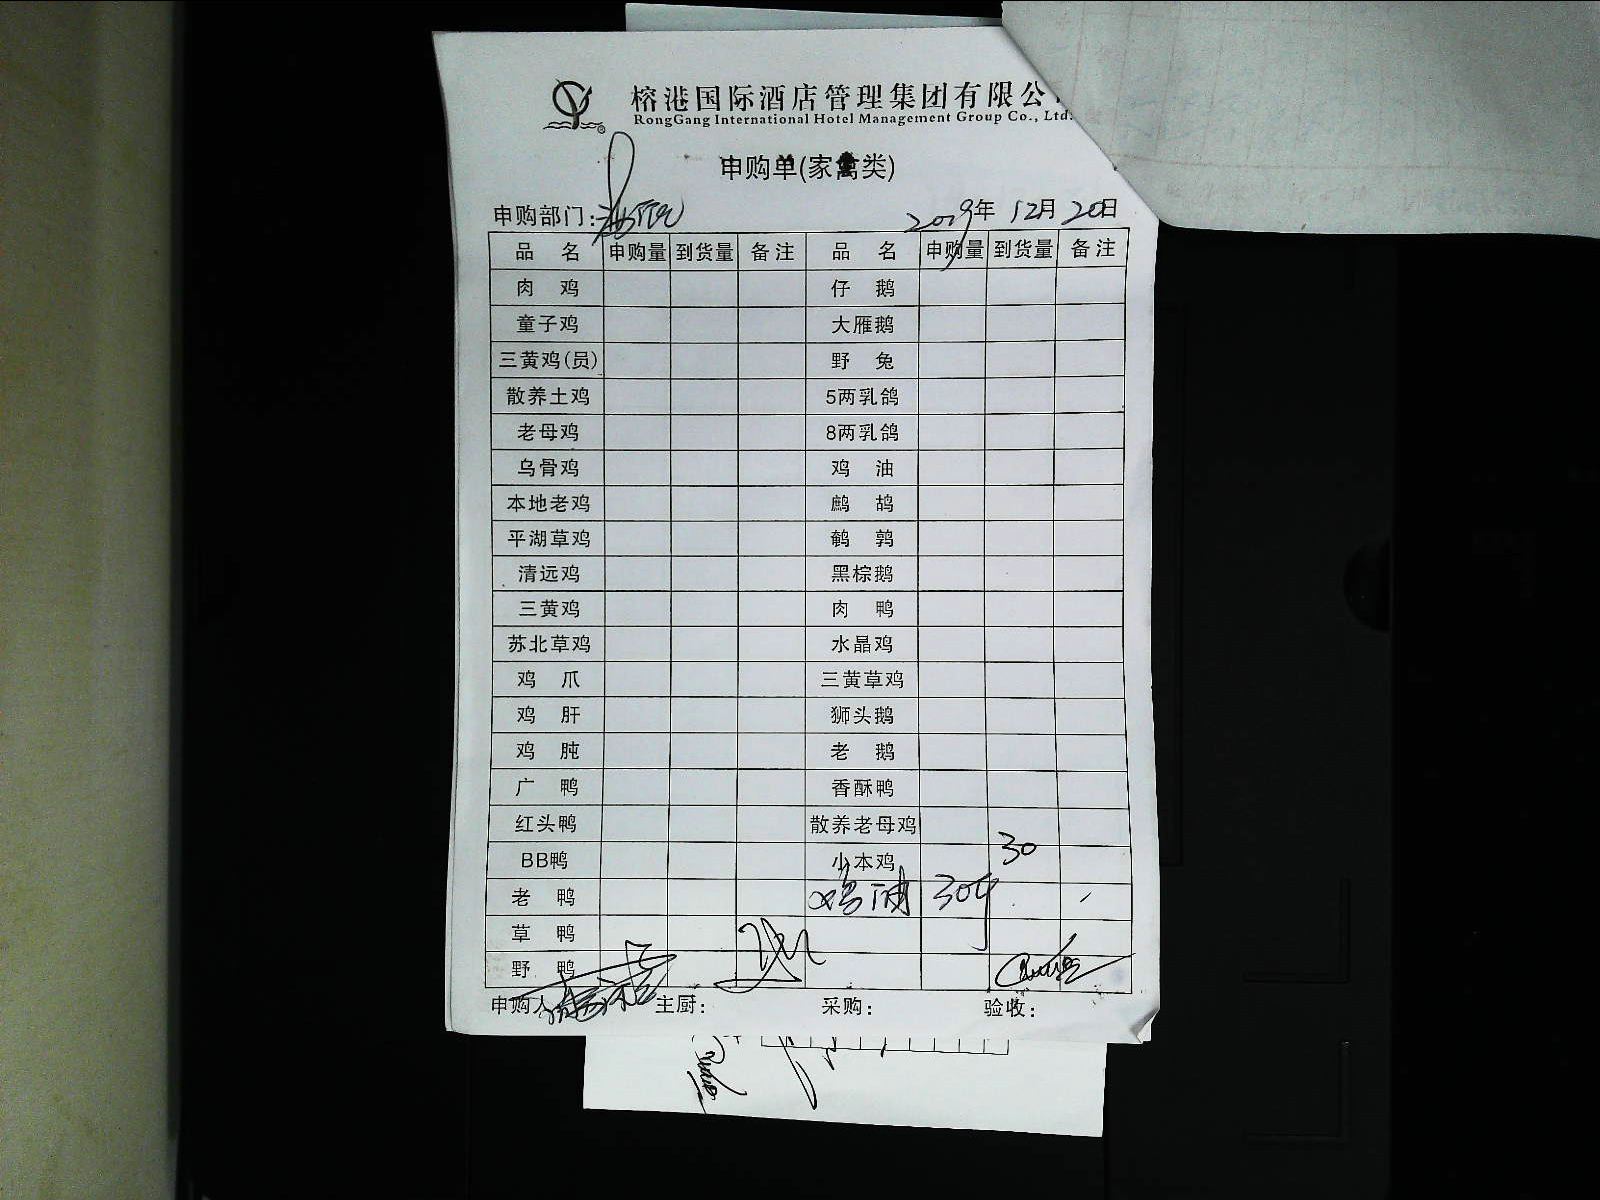 榕港国际酒店管理集团有限公
RongGang International Hotel Management Group Co., Ltd.
申购单(家禽类)
申购部门:
2019年 12月 20日
品 名 申购量 到货量 备注 品 名 申购量 到货量 备注
肉 鸡 仔 鹅
童子鸡 大雁鹅
三黄鸡(员) 野 兔
散养土鸡 5两乳鸽
老母鸡 8两乳鸽
乌骨鸡 鸡 油
本地老鸡 鹧 鸪
平湖草鸡 鹌 鹑
清远鸡 黑棕鹅
三黄鸡 肉 鸭
苏北草鸡 水晶鸡
鸡 爪 三黄草鸡
鸡 肝 狮头鹅
鸡 肫 老 鹅
广 鸭 香酥鸭
红头鸭 散养老母鸡
BB鸭 小本鸡 30
老 鸭 鸡 30个
草 鸭
野 鸭
申购人 主厨: 采购: 验收: